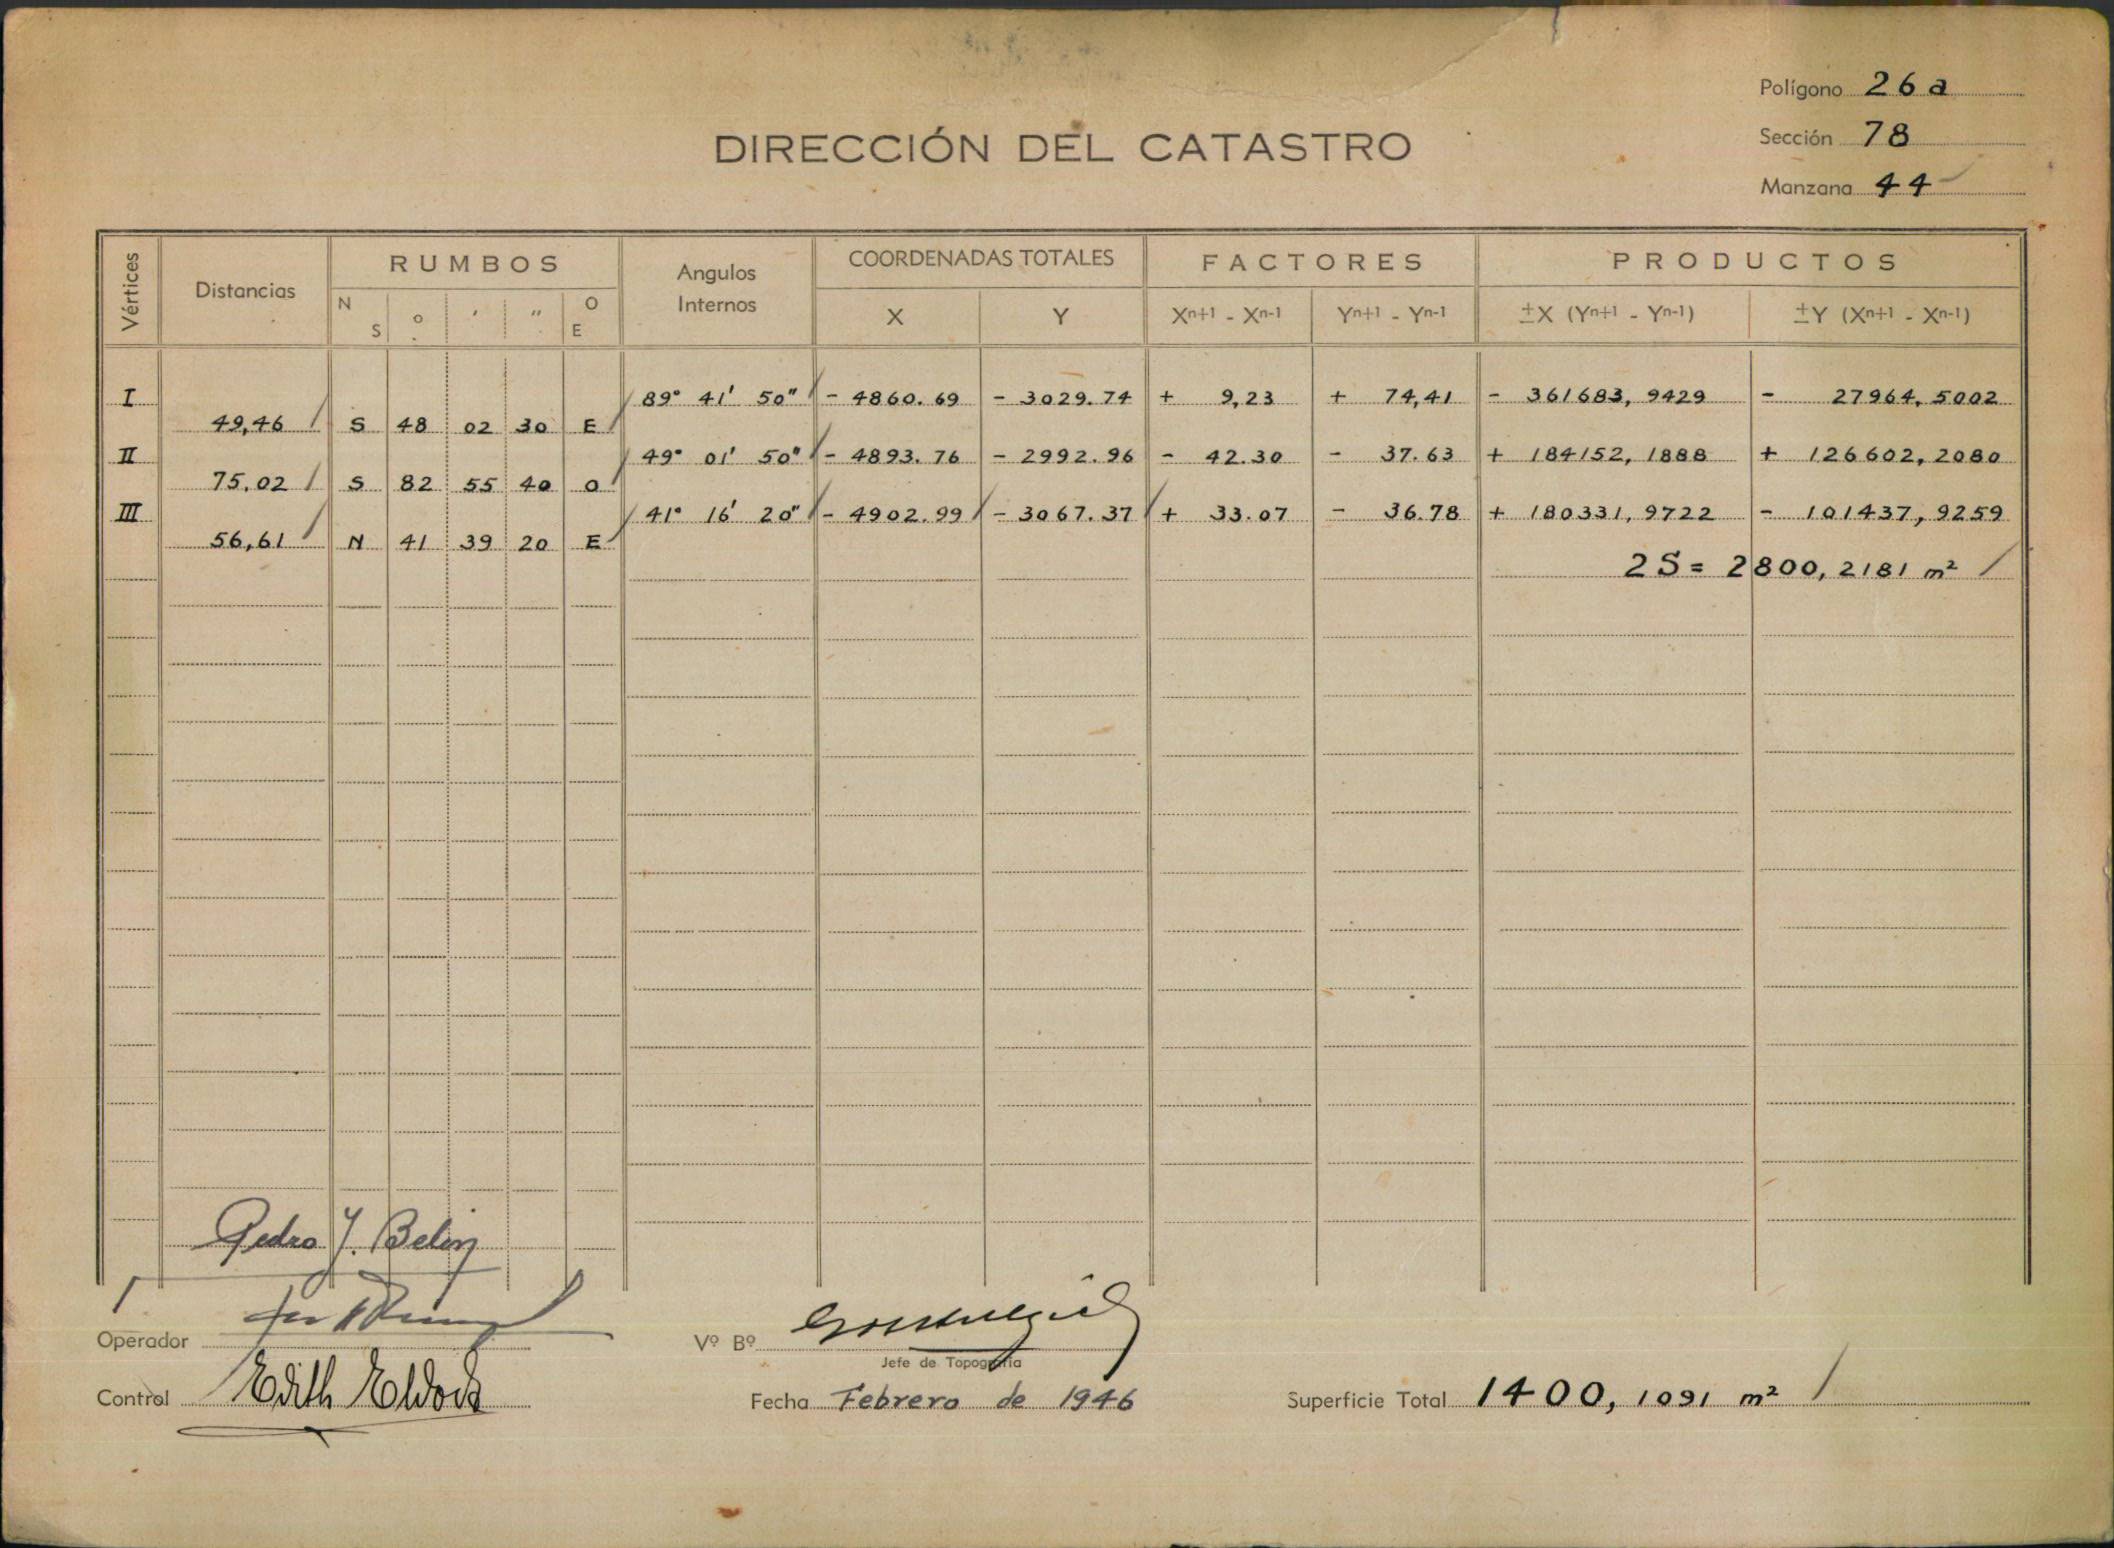 Polígono 26a
Sección 78
Manzana 44
DIRECCIÓN DEL CATASTRO
Vértices Distancias RUMBOS Angulos Internos COORDENADAS TOTALES FACTORES PRODUCTOS
N S ° ′ ″ O E X Y Xn+1 - Xn-1 Yn+1 - Yn-1 ±X (Yn+1 - Yn-1) ±Y (Xn+1 - Xn-1)
I 89° 41' 50" - 4860.69 - 3029.74 + 9,23 + 74,41 - 361683,9429 - 27964,5002
49,46 S 48 02 30 E
II 49° 01' 50" - 4893.76 - 2992.96 - 42.30 - 37.63 + 184152,1888 + 126602,2080
75.02 S 82 55 40 O
III 41° 16' 20" - 4902.99 - 3067.37 + 33.07 - 36.78 + 180331,9722 - 101437,9259
56,61 N 41 39 20 E
2S = 2800,2181 m²
Pedro J.
Operador
Vº Bº
Jefe de Topografía
Control Edith
Fecha Febrero de 1946
Superficie Total 1400,1091 m²